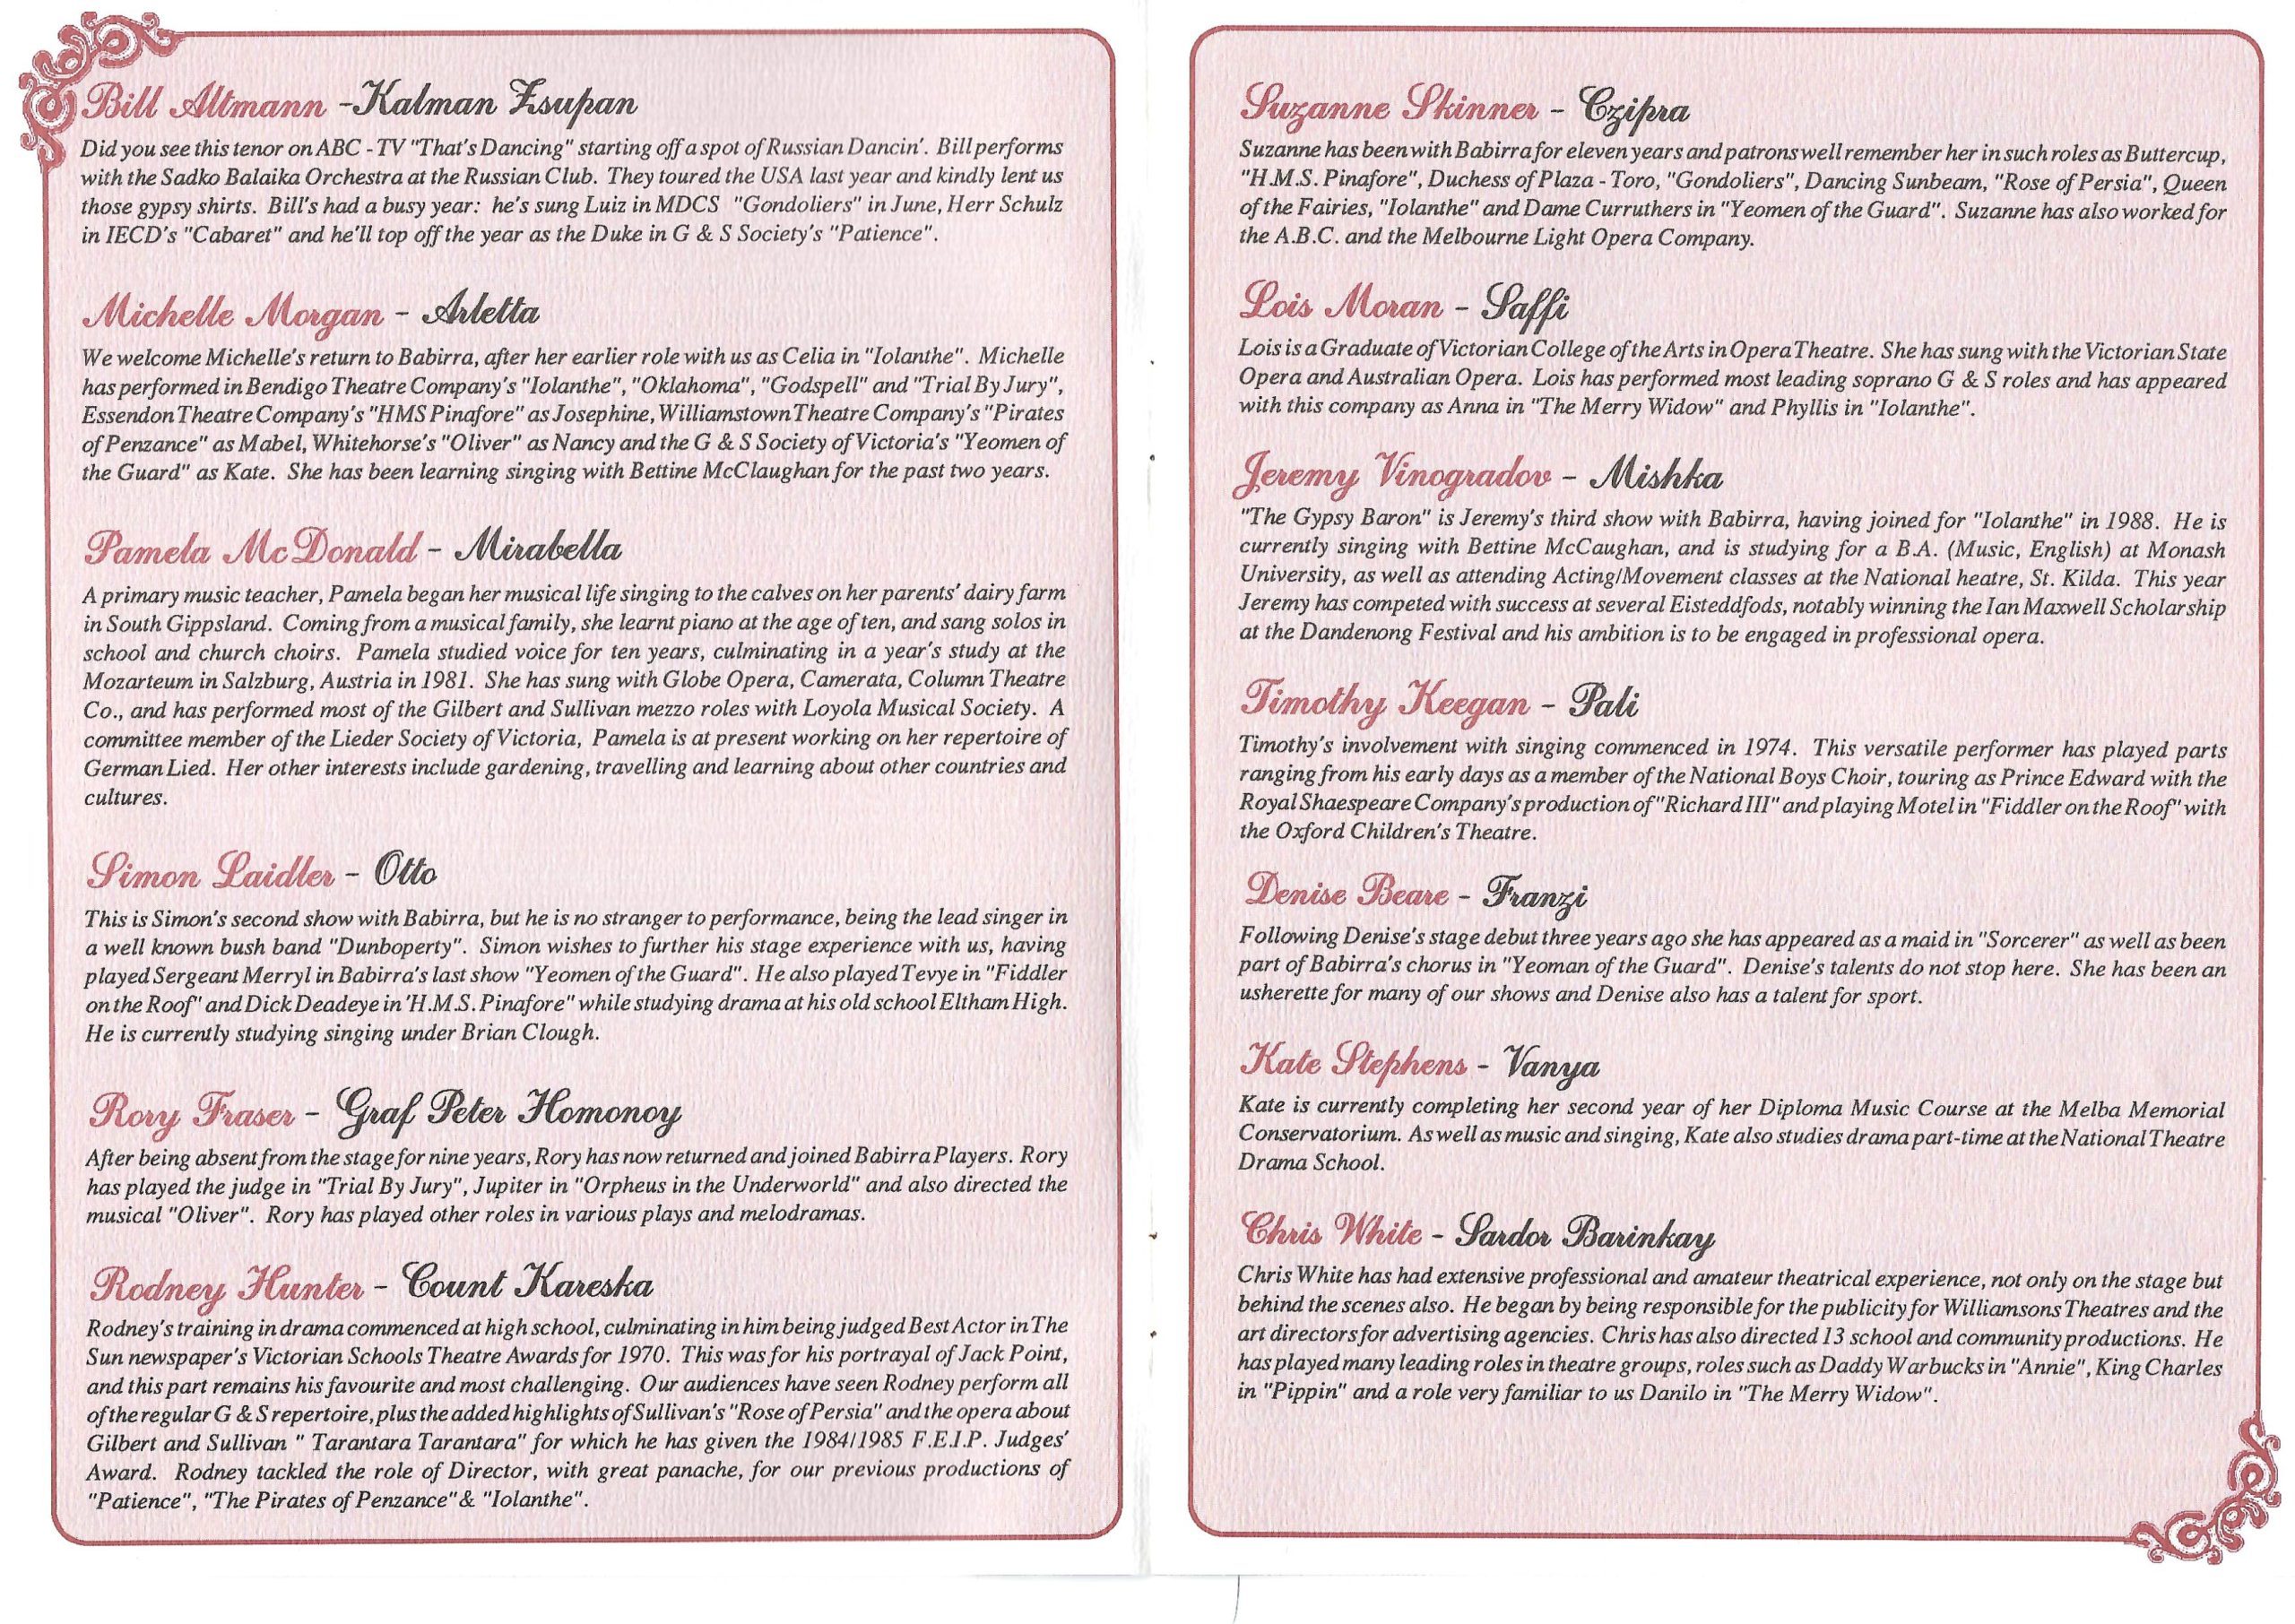 Bill Altmann -Kalman Zsupan
Did you see this tenor on ABC - TV "That's Dancing" starting off a spot of Russian Dancin'. Bill performs
with the Sadko Balaika Orchestra at the Russian Club. They toured the USA last year and kindly lent us
those gypsy shirts. Bill's had a busy year: he's sung Luiz in MDCS "Gondoliers" in June, Herr Schulz
in IECD's "Cabaret" and he'll top off the year as the Duke in G & S Society's "Patience".
Michelle Morgan - Arletta
We welcome Michelle's return to Babirra, after her earlier role with us as Celia in "Iolanthe". Michelle
has performed in Bendigo Theatre Company's "Iolanthe", "Oklahoma", "Godspell" and "Trial By Jury",
Essendon Theatre Company's "HMS Pinafore" as Josephine, Williamstown Theatre Company's "Pirates
of Penzance" as Mabel, Whitehorse's "Oliver" as Nancy and the G & S Society of Victoria's "Yeomen of
the Guard" as Kate. She has been learning singing with Bettine McClaughan for the past two years.
Pamela McDonald - Mirabella
A primary music teacher, Pamela began her musical life singing to the calves on her parents' dairy farm
in South Gippsland. Coming from a musical family, she learnt piano at the age of ten, and sang solos in
school and church choirs. Pamela studied voice for ten years, culminating in a year's study at the
Mozarteum in Salzburg, Austria in 1981. She has sung with Globe Opera, Camerata, Column Theatre
Co., and has performed most of the Gilbert and Sullivan mezzo roles with Loyola Musical Society. A
committee member of the Lieder Society of Victoria, Pamela is at present working on her repertoire of
German Lied. Her other interests include gardening, travelling and learning about other countries and
cultures.
Simon Laidler - Otto
This is Simon's second show with Babirra, but he is no stranger to performance, being the lead singer in
a well known bush band "Dunboperty". Simon wishes to further his stage experience with us, having
played Sergeant Merryl in Babirra's last show "Yeomen of the Guard". He also played Tevye in "Fiddler
on the Roof" and Dick Deadeye in 'H.M.S. Pinafore" while studying drama at his old school Eltham High.
He is currently studying singing under Brian Clough.
Rory Fraser - Graf Peter Homonoy
After being absent from the stage for nine years, Rory has now returned and joined Babirra Players. Rory
has played the judge in "Trial By Jury", Jupiter in "Orpheus in the Underworld" and also directed the
musical "Oliver". Rory has played other roles in various plays and melodramas.
Rodney Hunter - Count Kareska
Rodney's training in drama commenced at high school, culminating in him being judged Best Actor in The
Sun newspaper's Victorian Schools Theatre Awards for 1970. This was for his portrayal of Jack Point,
and this part remains his favourite and most challenging. Our audiences have seen Rodney perform all
of the regular G & S repertoire, plus the added highlights of Sullivan's "Rose of Persia" and the opera about
Gilbert and Sullivan " Tarantara Tarantara" for which he has given the 1984/1985 F.E.I.P. Judges'
Award. Rodney tackled the role of Director, with great panache, for our previous productions of
"Patience", "The Pirates of Penzance" & "Iolanthe".
Suzanne Skinner - Czipra
Suzanne has been with Babirra for eleven years and patrons well remember her in such roles as Buttercup,
"H.M.S. Pinafore", Duchess of Plaza - Toro, "Gondoliers", Dancing Sunbeam, "Rose of Persia", Queen
of the Fairies, "Iolanthe" and Dame Curruthers in "Yeomen of the Guard". Suzanne has also worked for
the A.B.C. and the Melbourne Light Opera Company.
Lois Moran - Saffi
Lois is a Graduate of Victorian College of the Arts in Opera Theatre. She has sung with the Victorian State
Opera and Australian Opera. Lois has performed most leading soprano G & S roles and has appeared
with this company as Anna in "The Merry Widow" and Phyllis in "Iolanthe".
Jeremy Vinogradov - Mishka
"The Gypsy Baron" is Jeremy's third show with Babirra, having joined for "Iolanthe" in 1988. He is
currently singing with Bettine McCaughan, and is studying for a B.A. (Music, English) at Monash
University, as well as attending Acting/Movement classes at the National heatre, St. Kilda. This year
Jeremy has competed with success at several Eisteddfods, notably winning the Ian Maxwell Scholarship
at the Dandenong Festival and his ambition is to be engaged in professional opera.
Timothy Keegan - Pali
Timothy's involvement with singing commenced in 1974. This versatile performer has played parts
ranging from his early days as a member of the National Boys Choir, touring as Prince Edward with the
Royal Shaespeare Company's production of "Richard III" and playing Motel in "Fiddler on the Roof" with
the Oxford Children's Theatre.
Denise Beare - Franzi
Following Denise's stage debut three years ago she has appeared as a maid in "Sorcerer" as well as been
part of Babirra's chorus in "Yeoman of the Guard". Denise's talents do not stop here. She has been an
usherette for many of our shows and Denise also has a talent for sport.
Kate Stephens - Vanya
Kate is currently completing her second year of her Diploma Music Course at the Melba Memorial
Conservatorium. As well as music and singing, Kate also studies drama part-time at the National Theatre
Drama School.
Chris White - Sardor Barinkay
Chris White has had extensive professional and amateur theatrical experience, not only on the stage but
behind the scenes also. He began by being responsible for the publicity for Williamsons Theatres and the
art directors for advertising agencies. Chris has also directed 13 school and community productions. He
has played many leading roles in theatre groups, roles such as Daddy Warbucks in "Annie", King Charles
in "Pippin" and a role very familiar to us Danilo in "The Merry Widow".